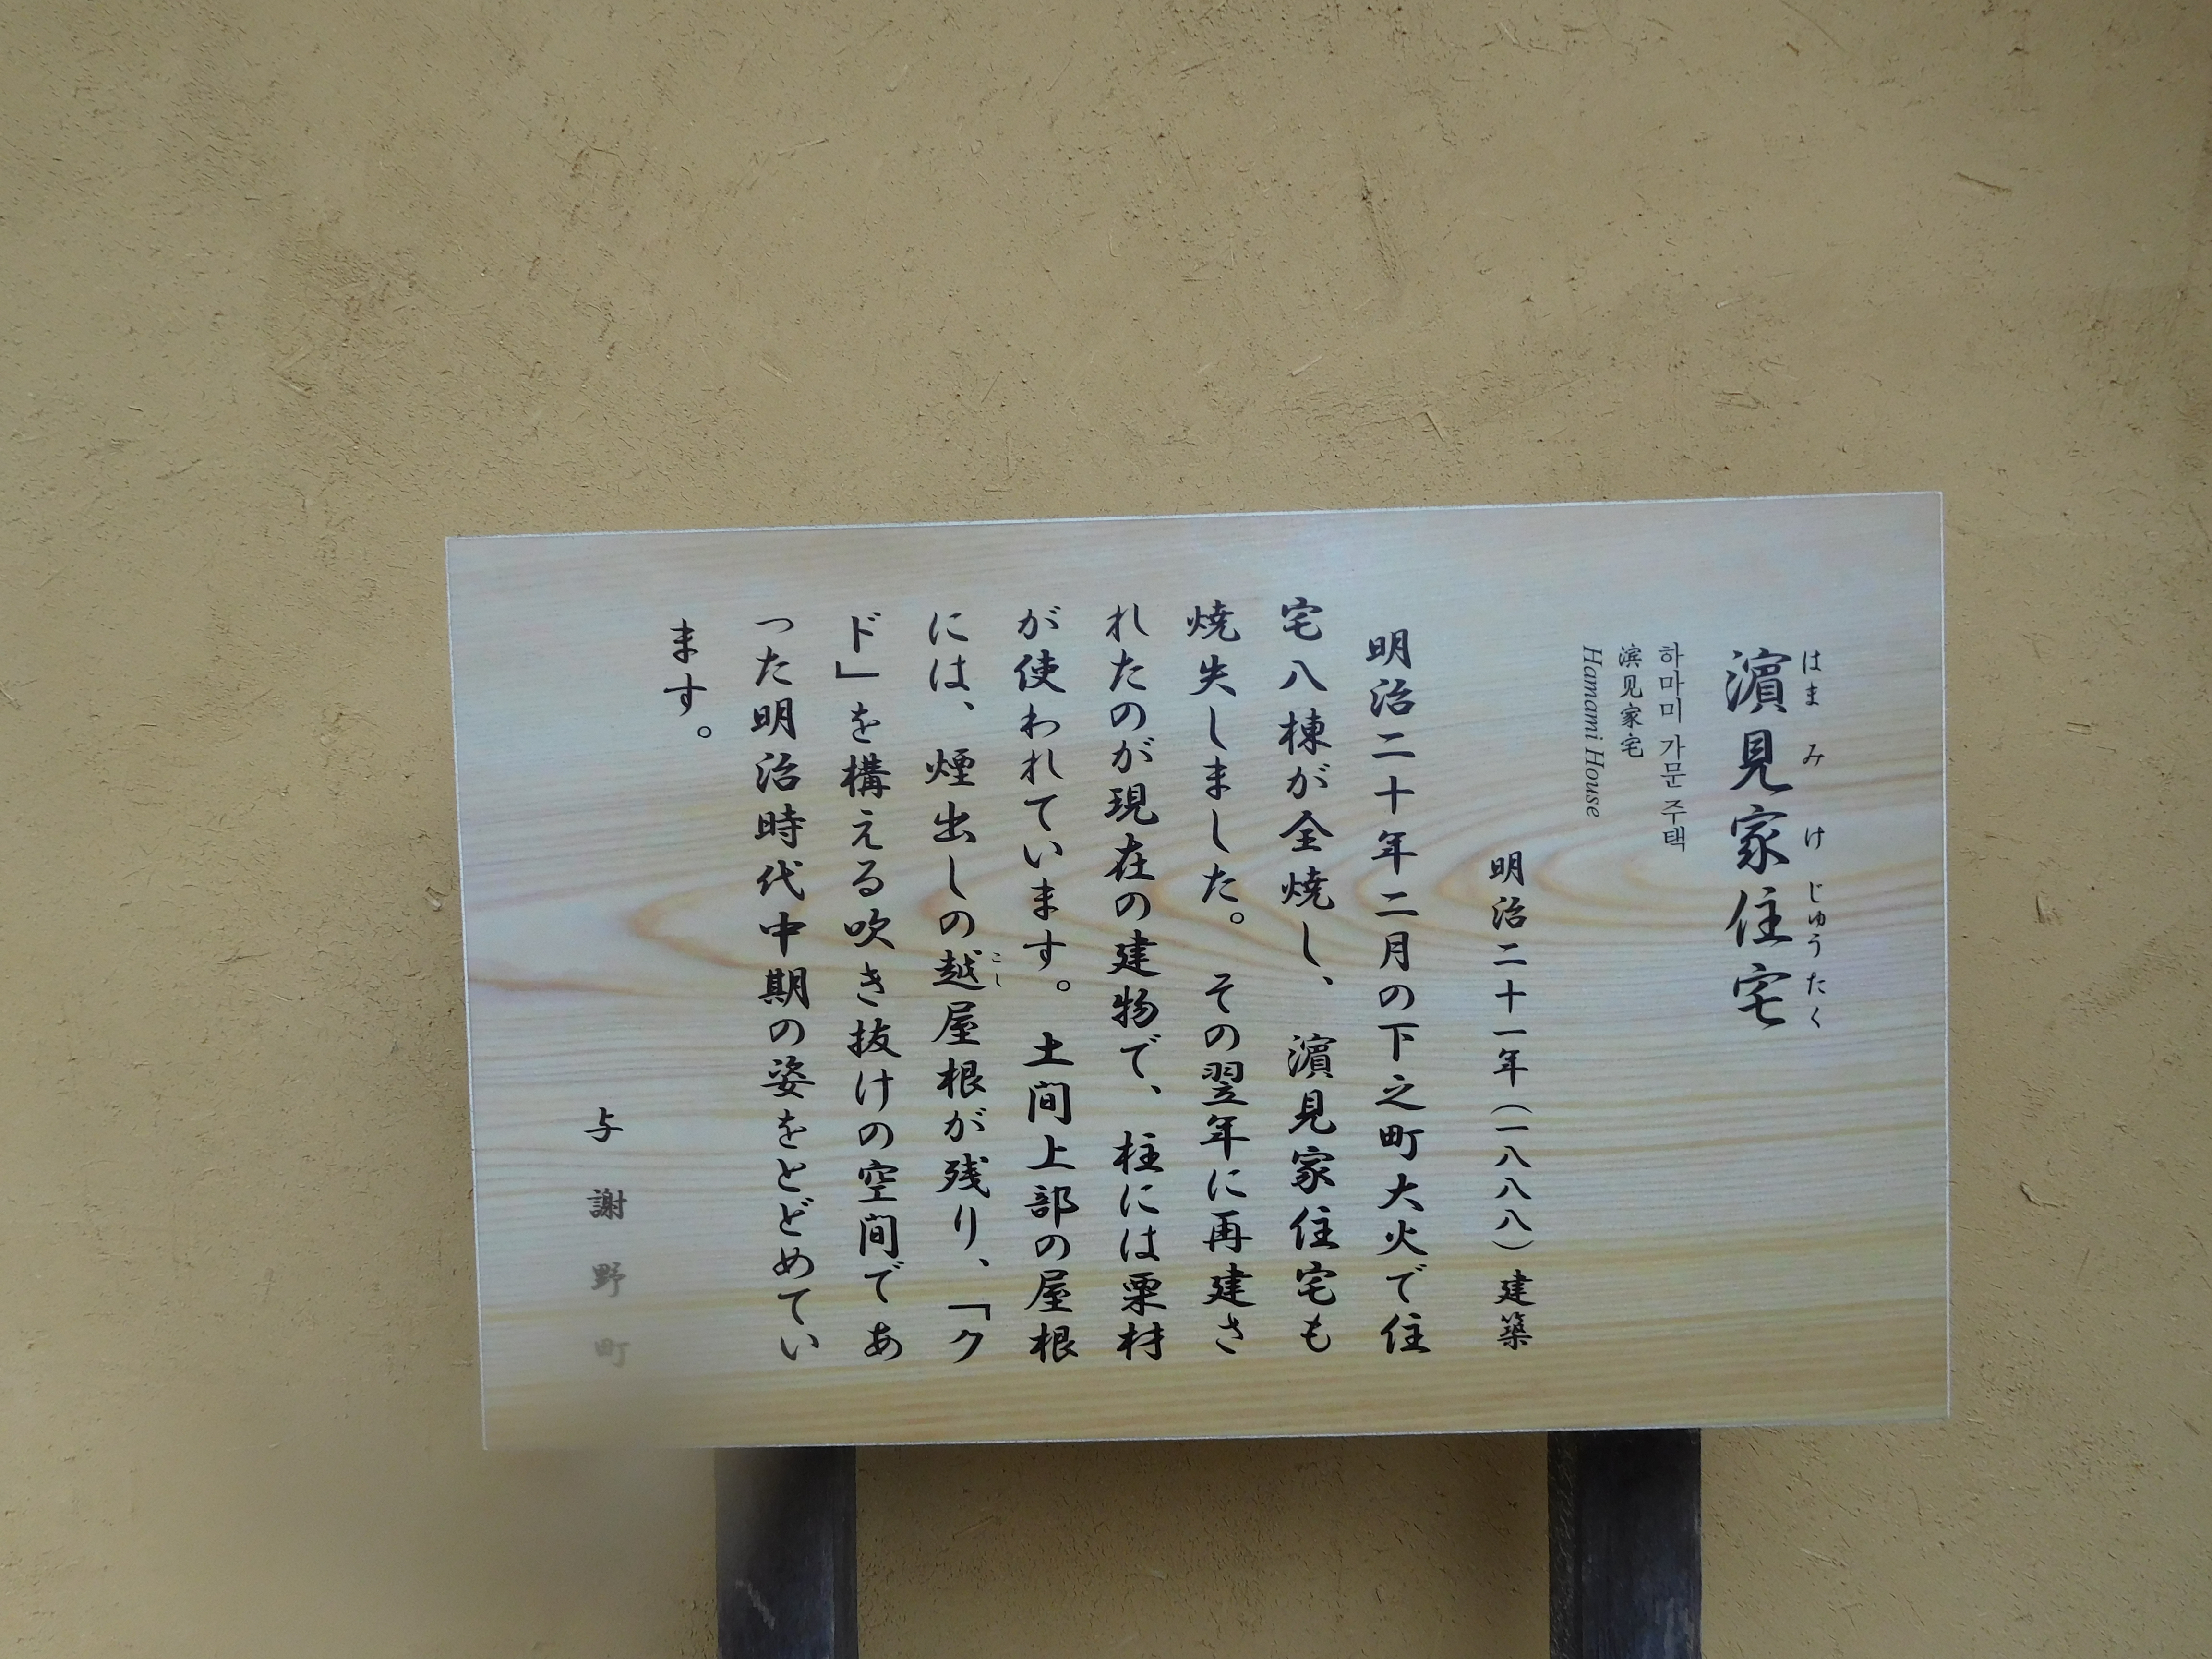 濵見家住宅
はまみけじゅうたく
하마미 가문 주택
滨见家宅
Hamami House
明治二十一年(一八八八)建築
明治二十年二月の下之町大火で住
宅八棟が全焼し、濵見家住宅も
焼失しました。その翌年に再建さ
れたのが現在の建物で、柱には栗材
が使われています。土間上部の屋根
には、煙出しの越屋根が残り、「ク
こし
ド」を構える吹き抜けの空間であ
った明治時代中期の姿をとどめてい
ます。
与謝野町